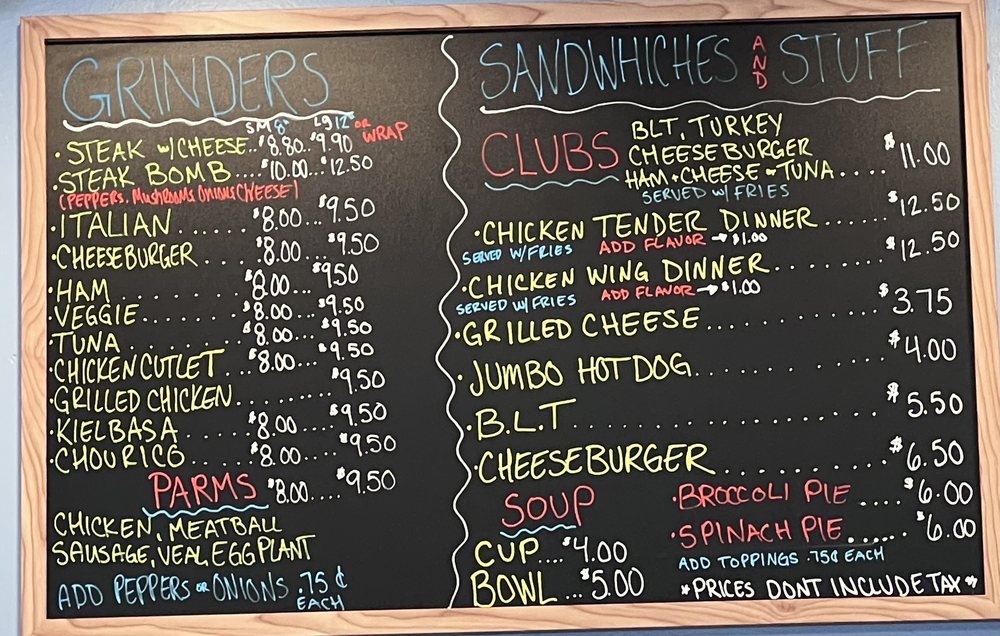 GRINDERS
SM 8" LG 12" OR WRAP
• STEAK w/CHEESE..$8.80..$9.90
• STEAK BOMB....$10.00...$12.50
(PEPPERS, MUSHROOMS ONIONS CHEESE)
• ITALIAN......$8.00...$9.50
• CHEESEBURGER...$8.00...$9.50
• HAM..........$8.00...$9.50
• VEGGIE........$8.00...$9.50
• TUNA..........$8.00...$9.50
• CHICKEN CUTLET...$8.00...$9.50
• GRILLED CHICKEN..........$9.50
• KIELBASA......$8.00...$9.50
• CHOURICO......$8.00...$9.50
PARMS $8.00....$9.50
CHICKEN, MEATBALL
SAUSAGE, VEAL, EGGPLANT
ADD PEPPERS OR ONIONS .75¢ EACH
SANDWHICHES AND STUFF
CLUBS
BLT, TURKEY
CHEESEBURGER
HAM + CHEESE - TUNA.... $11.00
SERVED w/ FRIES
• CHICKEN TENDER DINNER...... $12.50
SERVED W/FRIES ADD FLAVOR → $1.00
• CHICKEN WING DINNER......... $12.50
SERVED w/ FRIES ADD FLAVOR → $1.00
• GRILLED CHEESE............. $3.75
• JUMBO HOT DOG............ $4.00
• B.L.T.................... $5.50
• CHEESEBURGER............ $6.50
SOUP
CUP....$4.00
BOWL...$5.00
• BROCCOLI PIE.....$6.00
• SPINACH PIE......$6.00
ADD TOPPINGS .75¢ EACH
*PRICES DONT INCLUDE TAX*